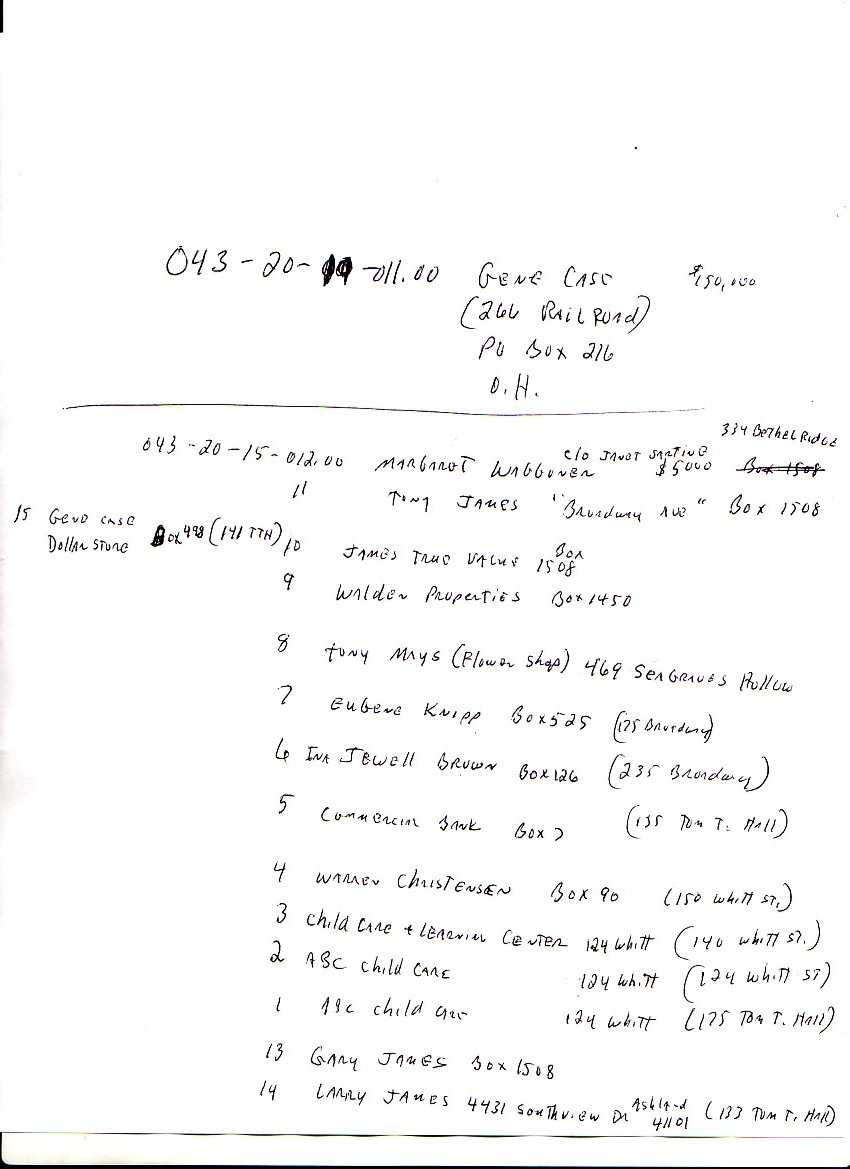 043-20- -011.00 GENE CASE $150,000
(266 RAILROAD)
PO BOX 216
O.H.
334 Bethel Ridge
043-20-15-012.00 MARGARET WAGGONER c/o JANET $5000 Box 1508
11 TONY JAMES "Broadway AVE" Box 1508
15 Gene case Dollar Store Box 498 (141 TTH)
10 JAMES TRUE VALUE Box 1508
9 WALDEN PROPERTIES Box 1450
8 TONY MAYS (Flower Shop) 469 SEAGRAVES Hollow
7 EUGENE KNIPP Box 525 (175 Broadway)
6 INA JEWELL BROWN Box 126 (235 Broadway)
5 COMMERCIAL BANK Box 7 (135 Tom T. Hall)
4 WARREN CHRISTENSEN BOX 90 (150 Whitt ST.)
3 Child Care + LEARNING CENTER 124 Whitt (140 Whitt ST.)
2 ABC Child CARE 124 Whitt (124 Whitt ST)
1 ABC child care 124 Whitt (175 Tom T. Hall)
13 GARY JAMES Box 1508
14 LARRY JAMES 4431 Southview DR Ashland 41101 (133 Tom T. Hall)